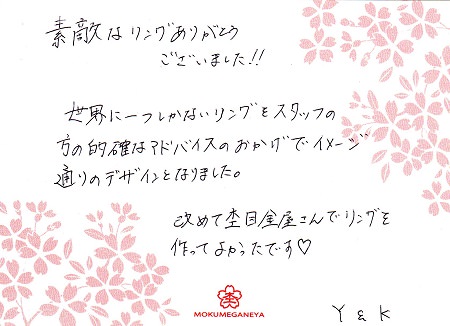 素敵なリングありがとう
ございました!!
世界に一つしかないリングをスタッフの
方の的確なアドバイスのおかげでイメージ
通りのデザインとなりました。
改めて杢目金屋さんでリングを
作ってよかったです♡
杢
MOKUMEGANEYA
Y & K